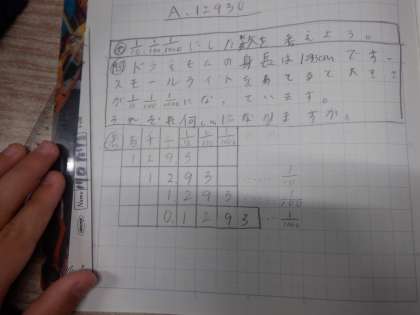 A. 12930
め 1/10, 1/100, 1/1000 にした数を考えよう。
問 ドラえもんの身長は129.3cmです。
スモールライトをあてると大きさ
が 1/10 1/100 1/1000 になっています。
それぞれ何cmになりますか。
百 十 一 1/10 1/100 1/1000
1 2 9 3
1 2 9 3 … 1/10
1 2 9 3 1/100
0 1 2 9 3 … 1/1000
Name